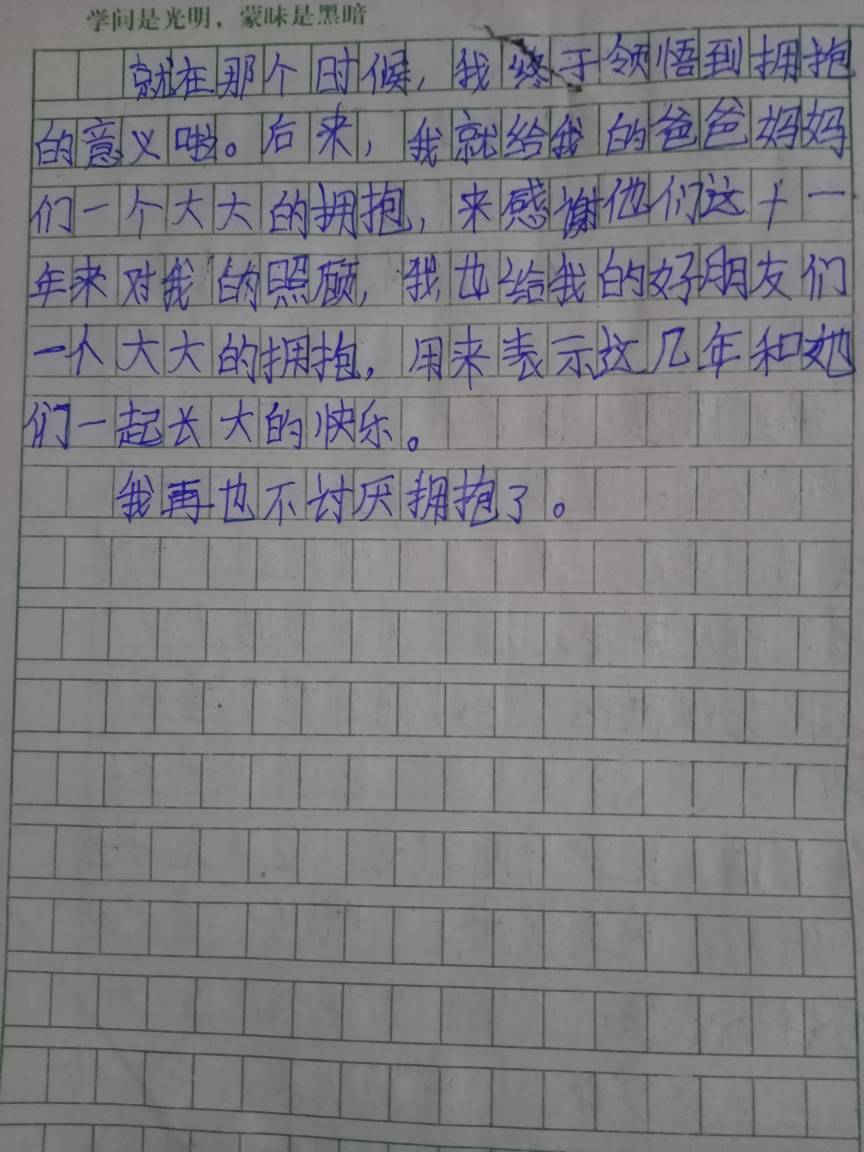 学问是光明，蒙昧是黑暗
就在那个时候，我终于领悟到拥抱
的意义啦。后来，我就给我的爸爸妈妈
们一个大大的拥抱，来感谢他们这十一
年来对我的照顾，我也给我的好朋友们
一个大大的拥抱，用来表示这几年和她
们一起长大的快乐。
我再也不讨厌拥抱了。